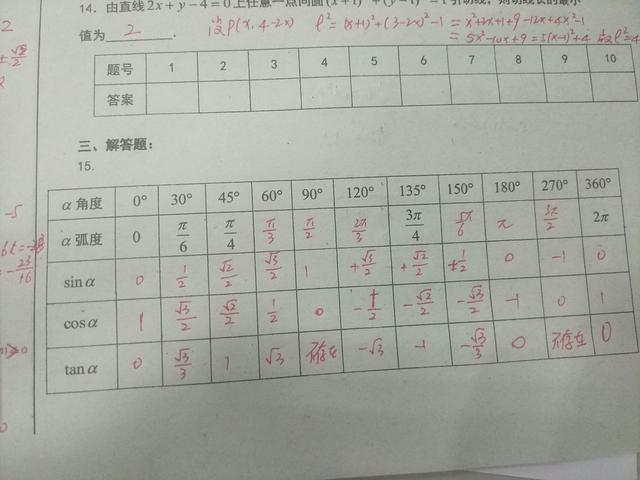 14. 由直线 2x + y − 4 = 0 上任意一点向圆 (x+1)² + (y−1)² = 1 引切线，则切线长的最小
值为 2 . 设P(x, 4-2x) l²=(x+1)²+(3-2x)²-1 = x²+2x+1+9-12x+4x²-1
= 5x²-10x+9 = 5(x-1)²+4 故l²=4
题号 1 2 3 4 5 6 7 8 9 10
答案
三、解答题：
15.
α 角度 0° 30° 45° 60° 90° 120° 135° 150° 180° 270° 360°
α 弧度 0 π/6 π/4 π/3 π/2 2π/3 3π/4 5π/6 π 3π/2 2π
sin α 0 1/2 √2/2 √3/2 1 +√3/2 +√2/2 +1/2 0 -1 0
cos α 1 √3/2 √2/2 1/2 0 -1/2 -√2/2 -√3/2 -1 0 1
tan α 0 √3/3 1 √3 不存在 -√3 -1 -√3/3 0 不存在 0